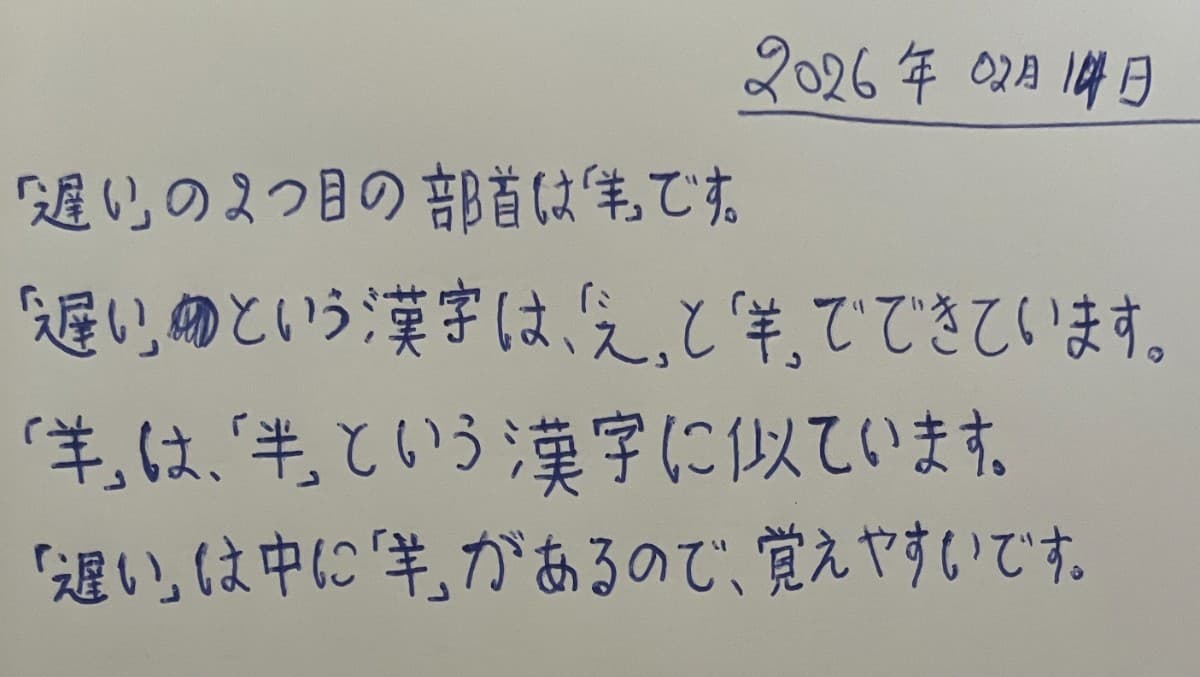 2026年 02月14日
「遅い」の2つ目の部首は「羊」です。
「遅い」という漢字は、「え」と「羊」でできています。
「羊」は、「半」という漢字に似ています。
「遅い」は中に「羊」があるので、覚えやすいです。